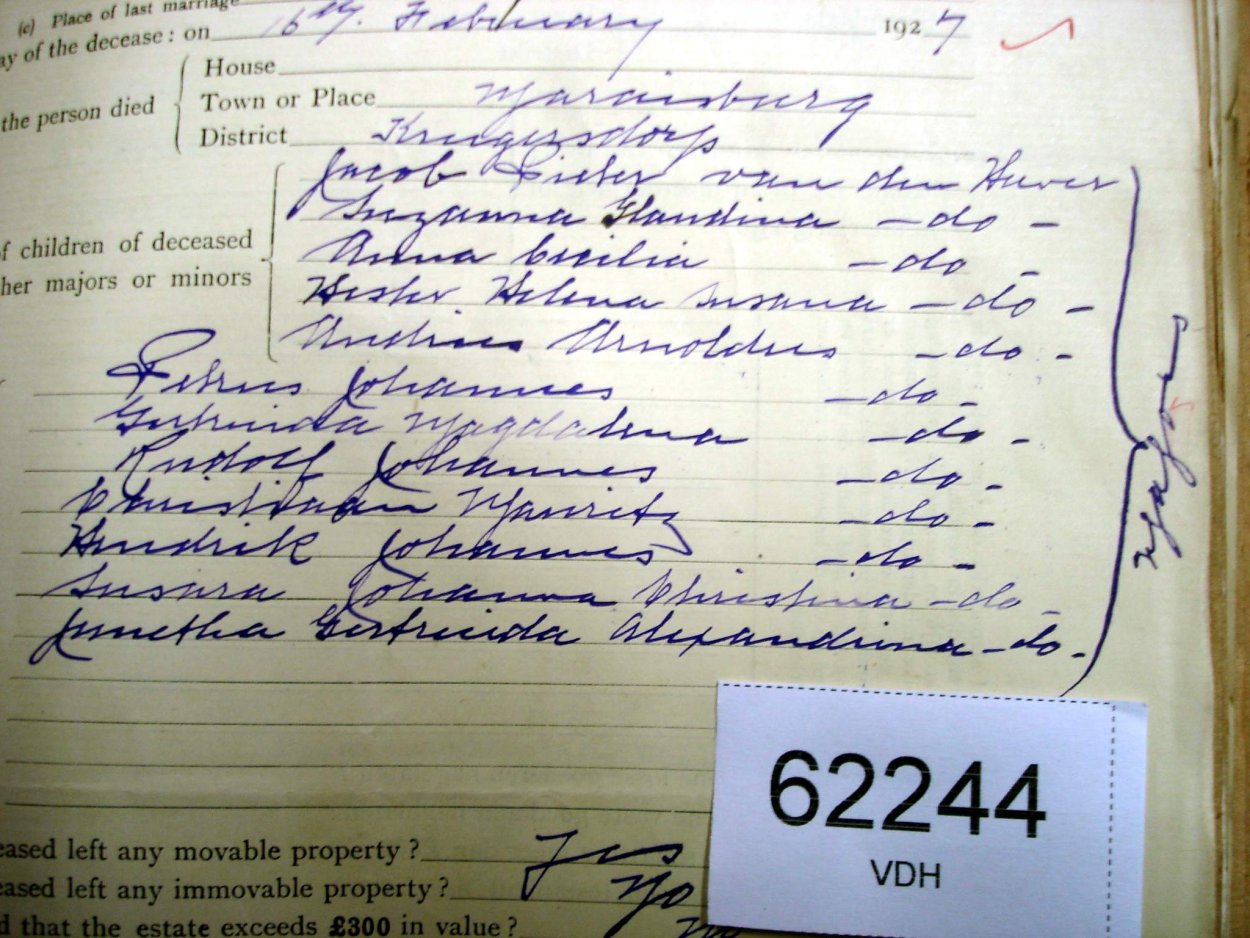 (c) Place of last marriage
ay of the decease: on 16th. February 1927
House
the person died
Town or Place Maraisburg
District Krugersdorp
Jacob Pieter van den Hever
Suzanna Glaudina - do -
Anna Cecilia - do -
f children of deceased
her majors or minors
Hester Helena Susana - do -
Andries Arnoldus - do -
Petrus Johannes - do -
Gertruida Magdalena - do -
Rudolf Johannes - do -
Christiaan Mauritz - do -
Hendrik Johannes - do -
Susara Johanna Christina - do -
Gertruida Alexandrina - do -
Majors
eased left any movable property? Yes
eased left any immovable property? No
d that the estate exceeds £300 in value? No
62244
VDH